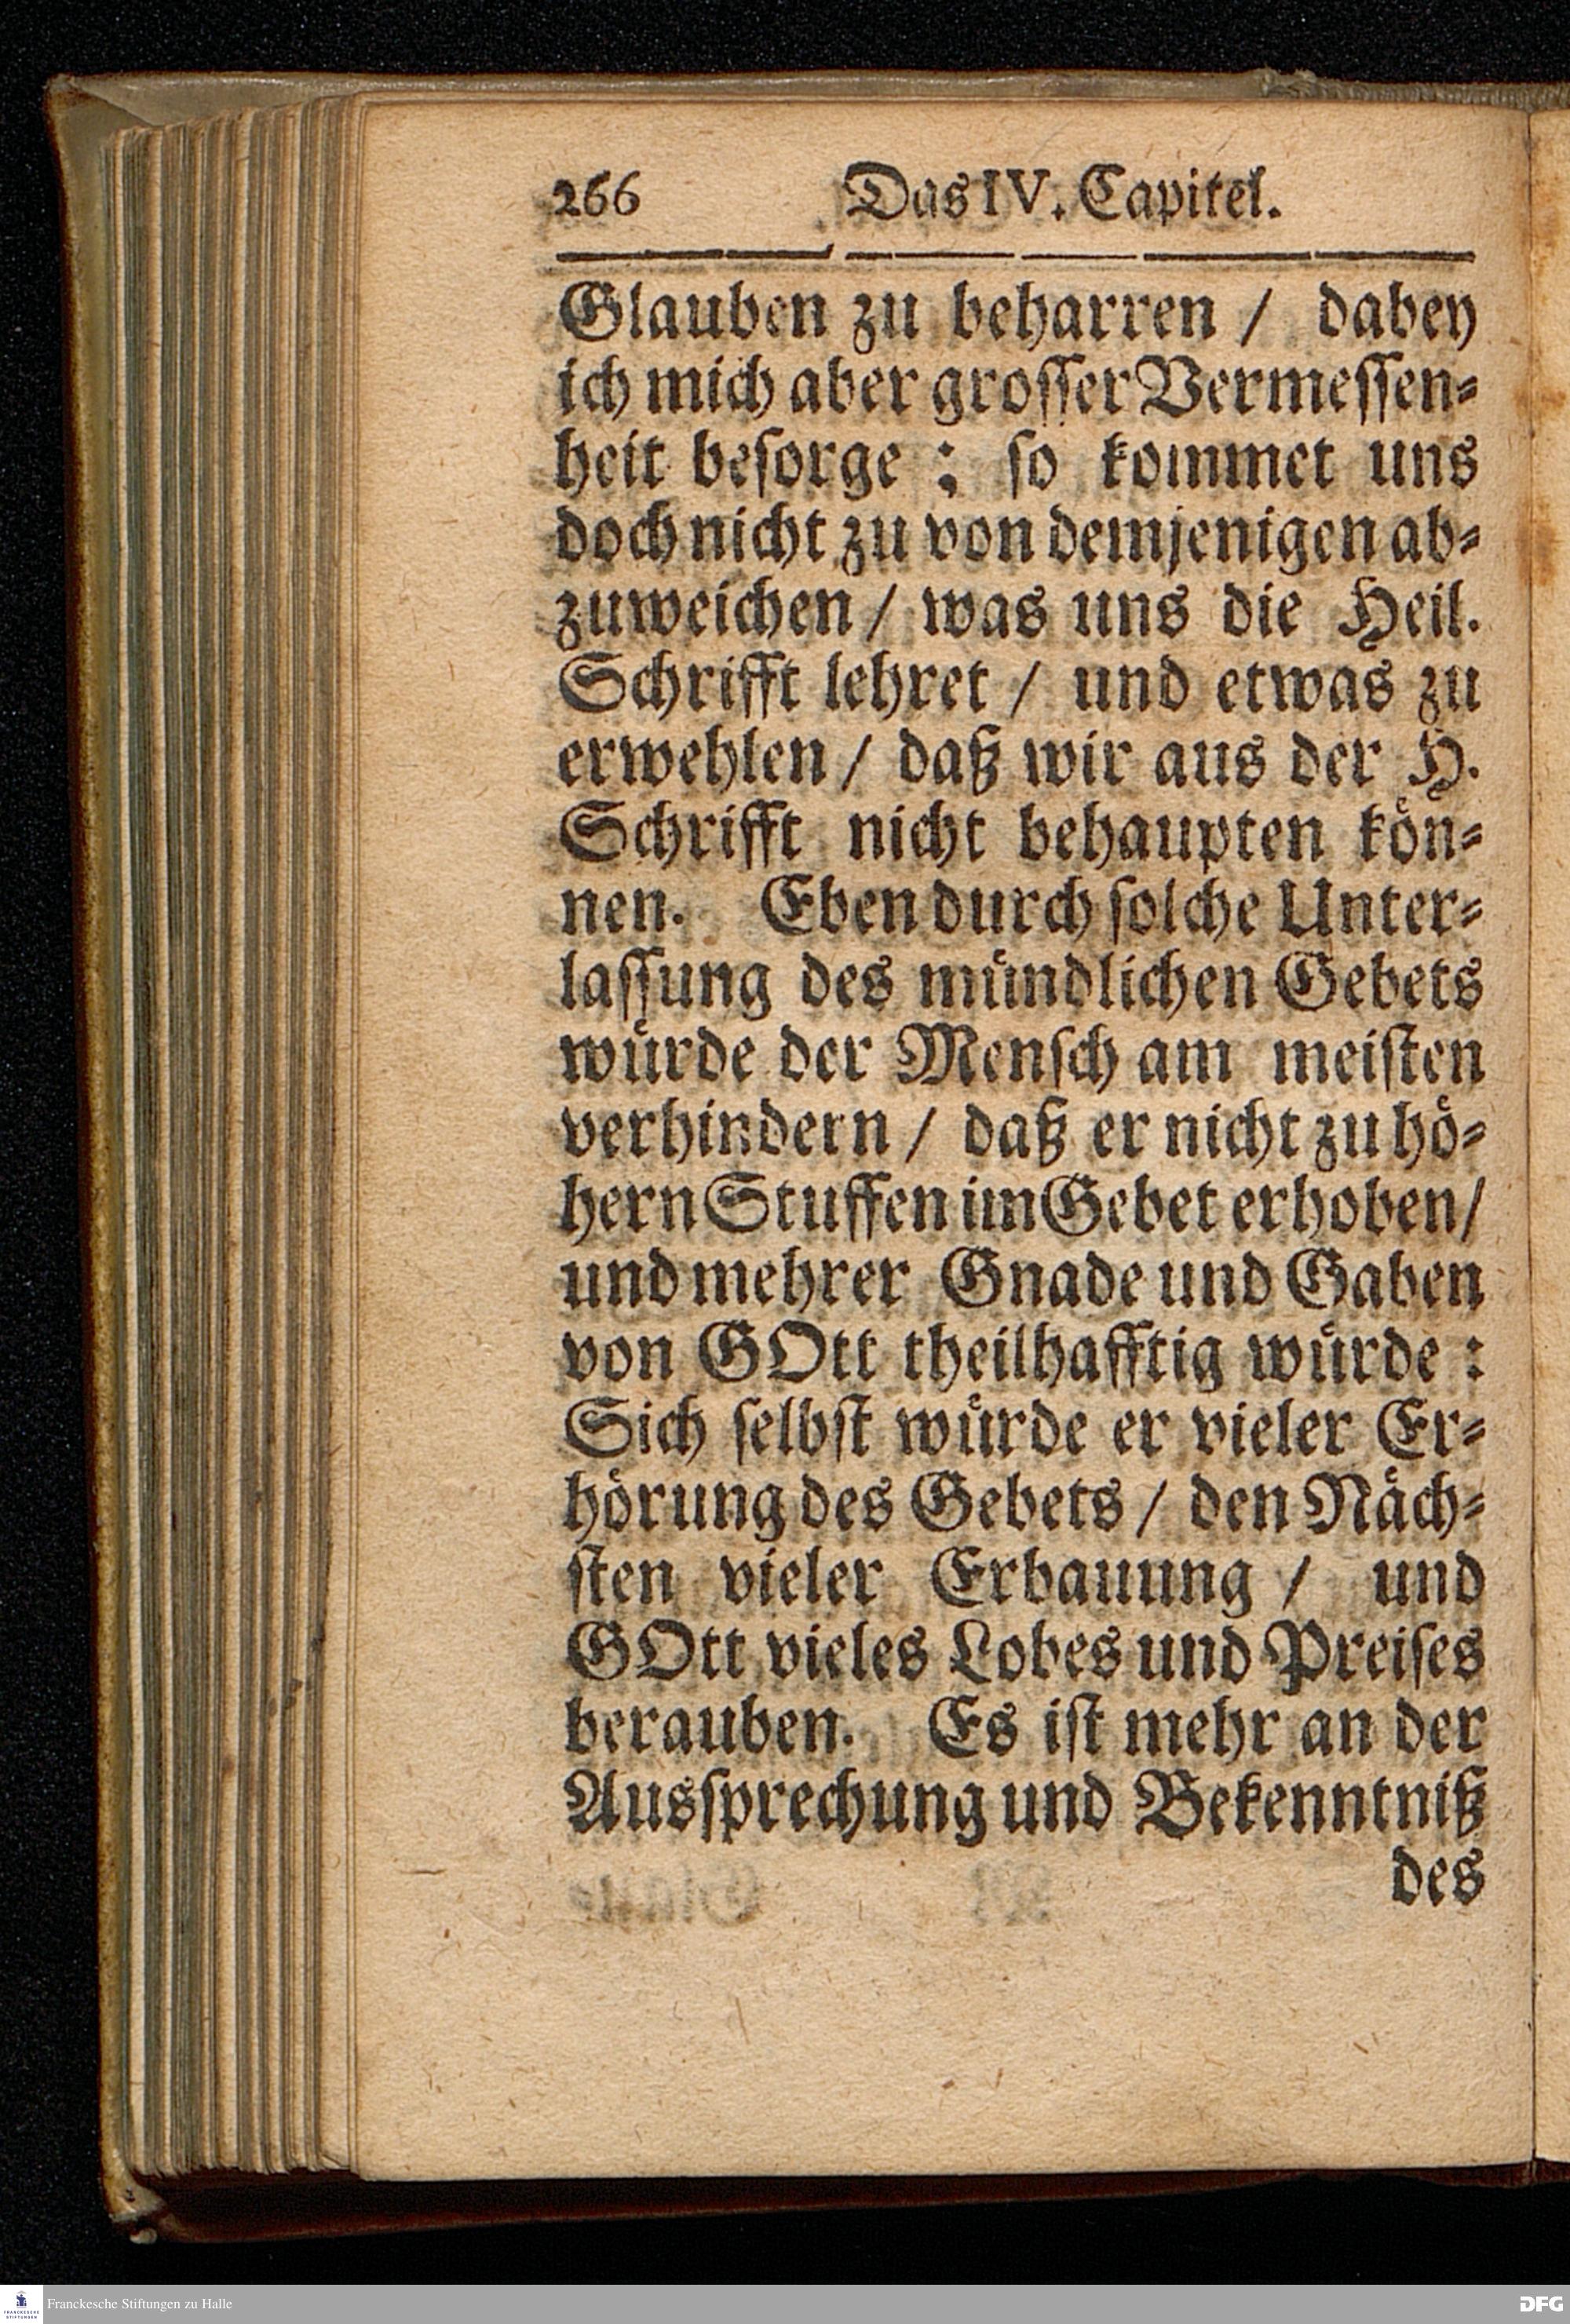 266 Das IV. Capitel.
Glauben zu beharren / dabey
ich mich aber grosser Vermessen-
heit besorge ; so kommet uns
doch nicht zu von demjenigen ab-
zuweichen / was uns die Heil.
Schrifft lehret / und etwas zu
erwehlen / daß wir aus der H.
Schrifft nicht behaupten kön-
nen. Eben durch solche Unter-
lassung des mündlichen Gebets
würde der Mensch am meisten
verhindern / daß er nicht zu hö-
hern Stuffen im Gebet erhoben /
und mehrer Gnade und Gaben
von GOtt theilhafftig würde :
Sich selbst würde er vieler Er-
hörung des Gebets / den Näch-
sten vieler Erbauung / und
GOtt vieles Lobes und Preises
berauben. Es ist mehr an der
Aussprechung und Bekenntniß
des
Franckesche Stiftungen zu Halle
DFG